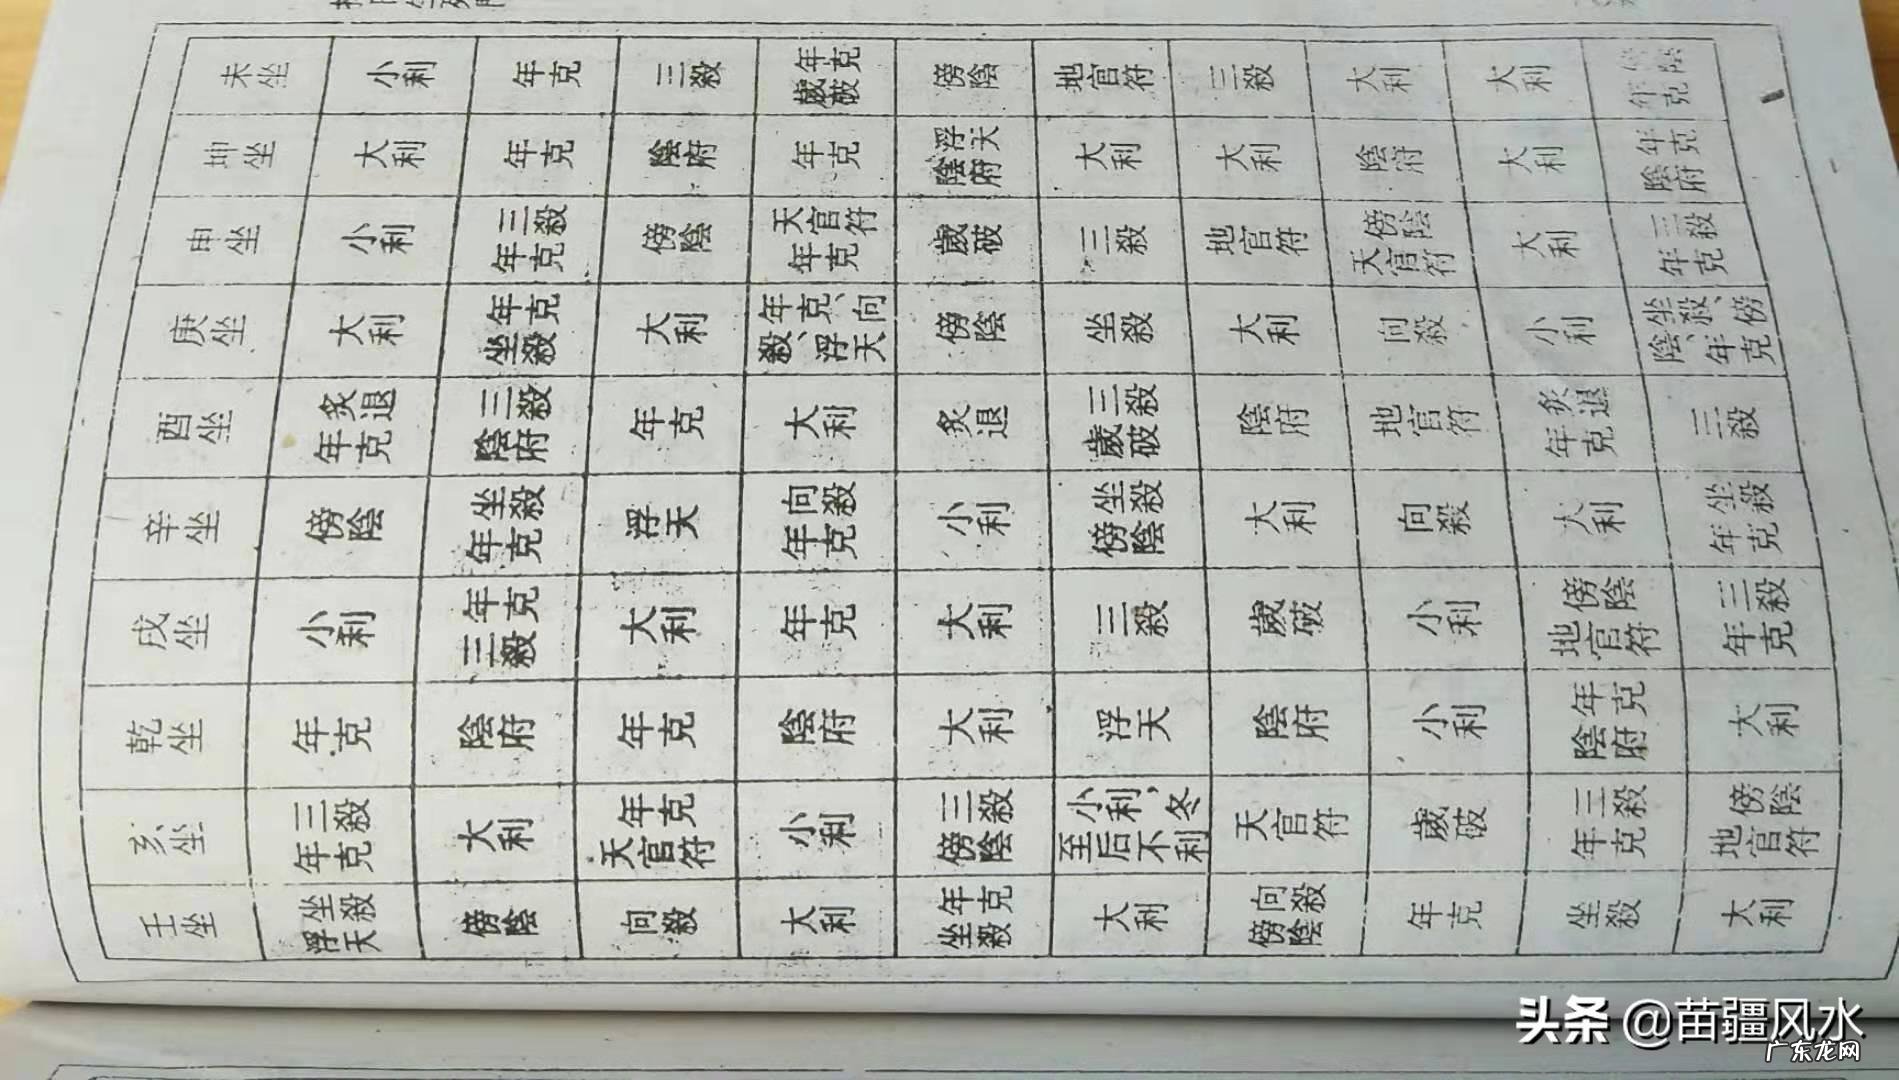 未坐 小利 年克 三殺 年克歲破 傍陰 地官符 三殺 大利 大利 年克
坤坐 大利 年克 陰府 年克 浮天陰府 大利 大利 陰府 大利 年克陰府
申坐 小利 三殺年克 傍陰 天官符年克 歲破 三殺 地官符 傍陰天官符 大利 三殺年克
庚坐 大利 年克坐殺 大利 年克、向殺、浮天 傍陰 坐殺 大利 向殺 小利 坐殺、傍陰、年克
酉坐 炙退年克 三殺陰府 年克 大利 炙退 三殺歲破 陰府 地官符 炙退年克 三殺
辛坐 傍陰 坐殺年克 浮天 向殺年克 小利 坐殺傍陰 大利 向殺 大利 坐殺年克
戌坐 小利 年克三殺 大利 年克 大利 三殺 歲破 小利 傍陰地官符 三殺年克
乾坐 年克 陰府 年克 陰府 大利 浮天 陰府 小利 年克陰府 大利
亥坐 三殺年克 大利 年克天官符 小利 三殺傍陰 小利、冬至后不利 天官符 歲破 三殺年克 傍陰地官符
壬坐 坐殺浮天 傍陰 向殺 大利 年克坐殺 大利 向殺傍陰 年克 坐殺 大利
头条 @苗疆风水
广东龙网